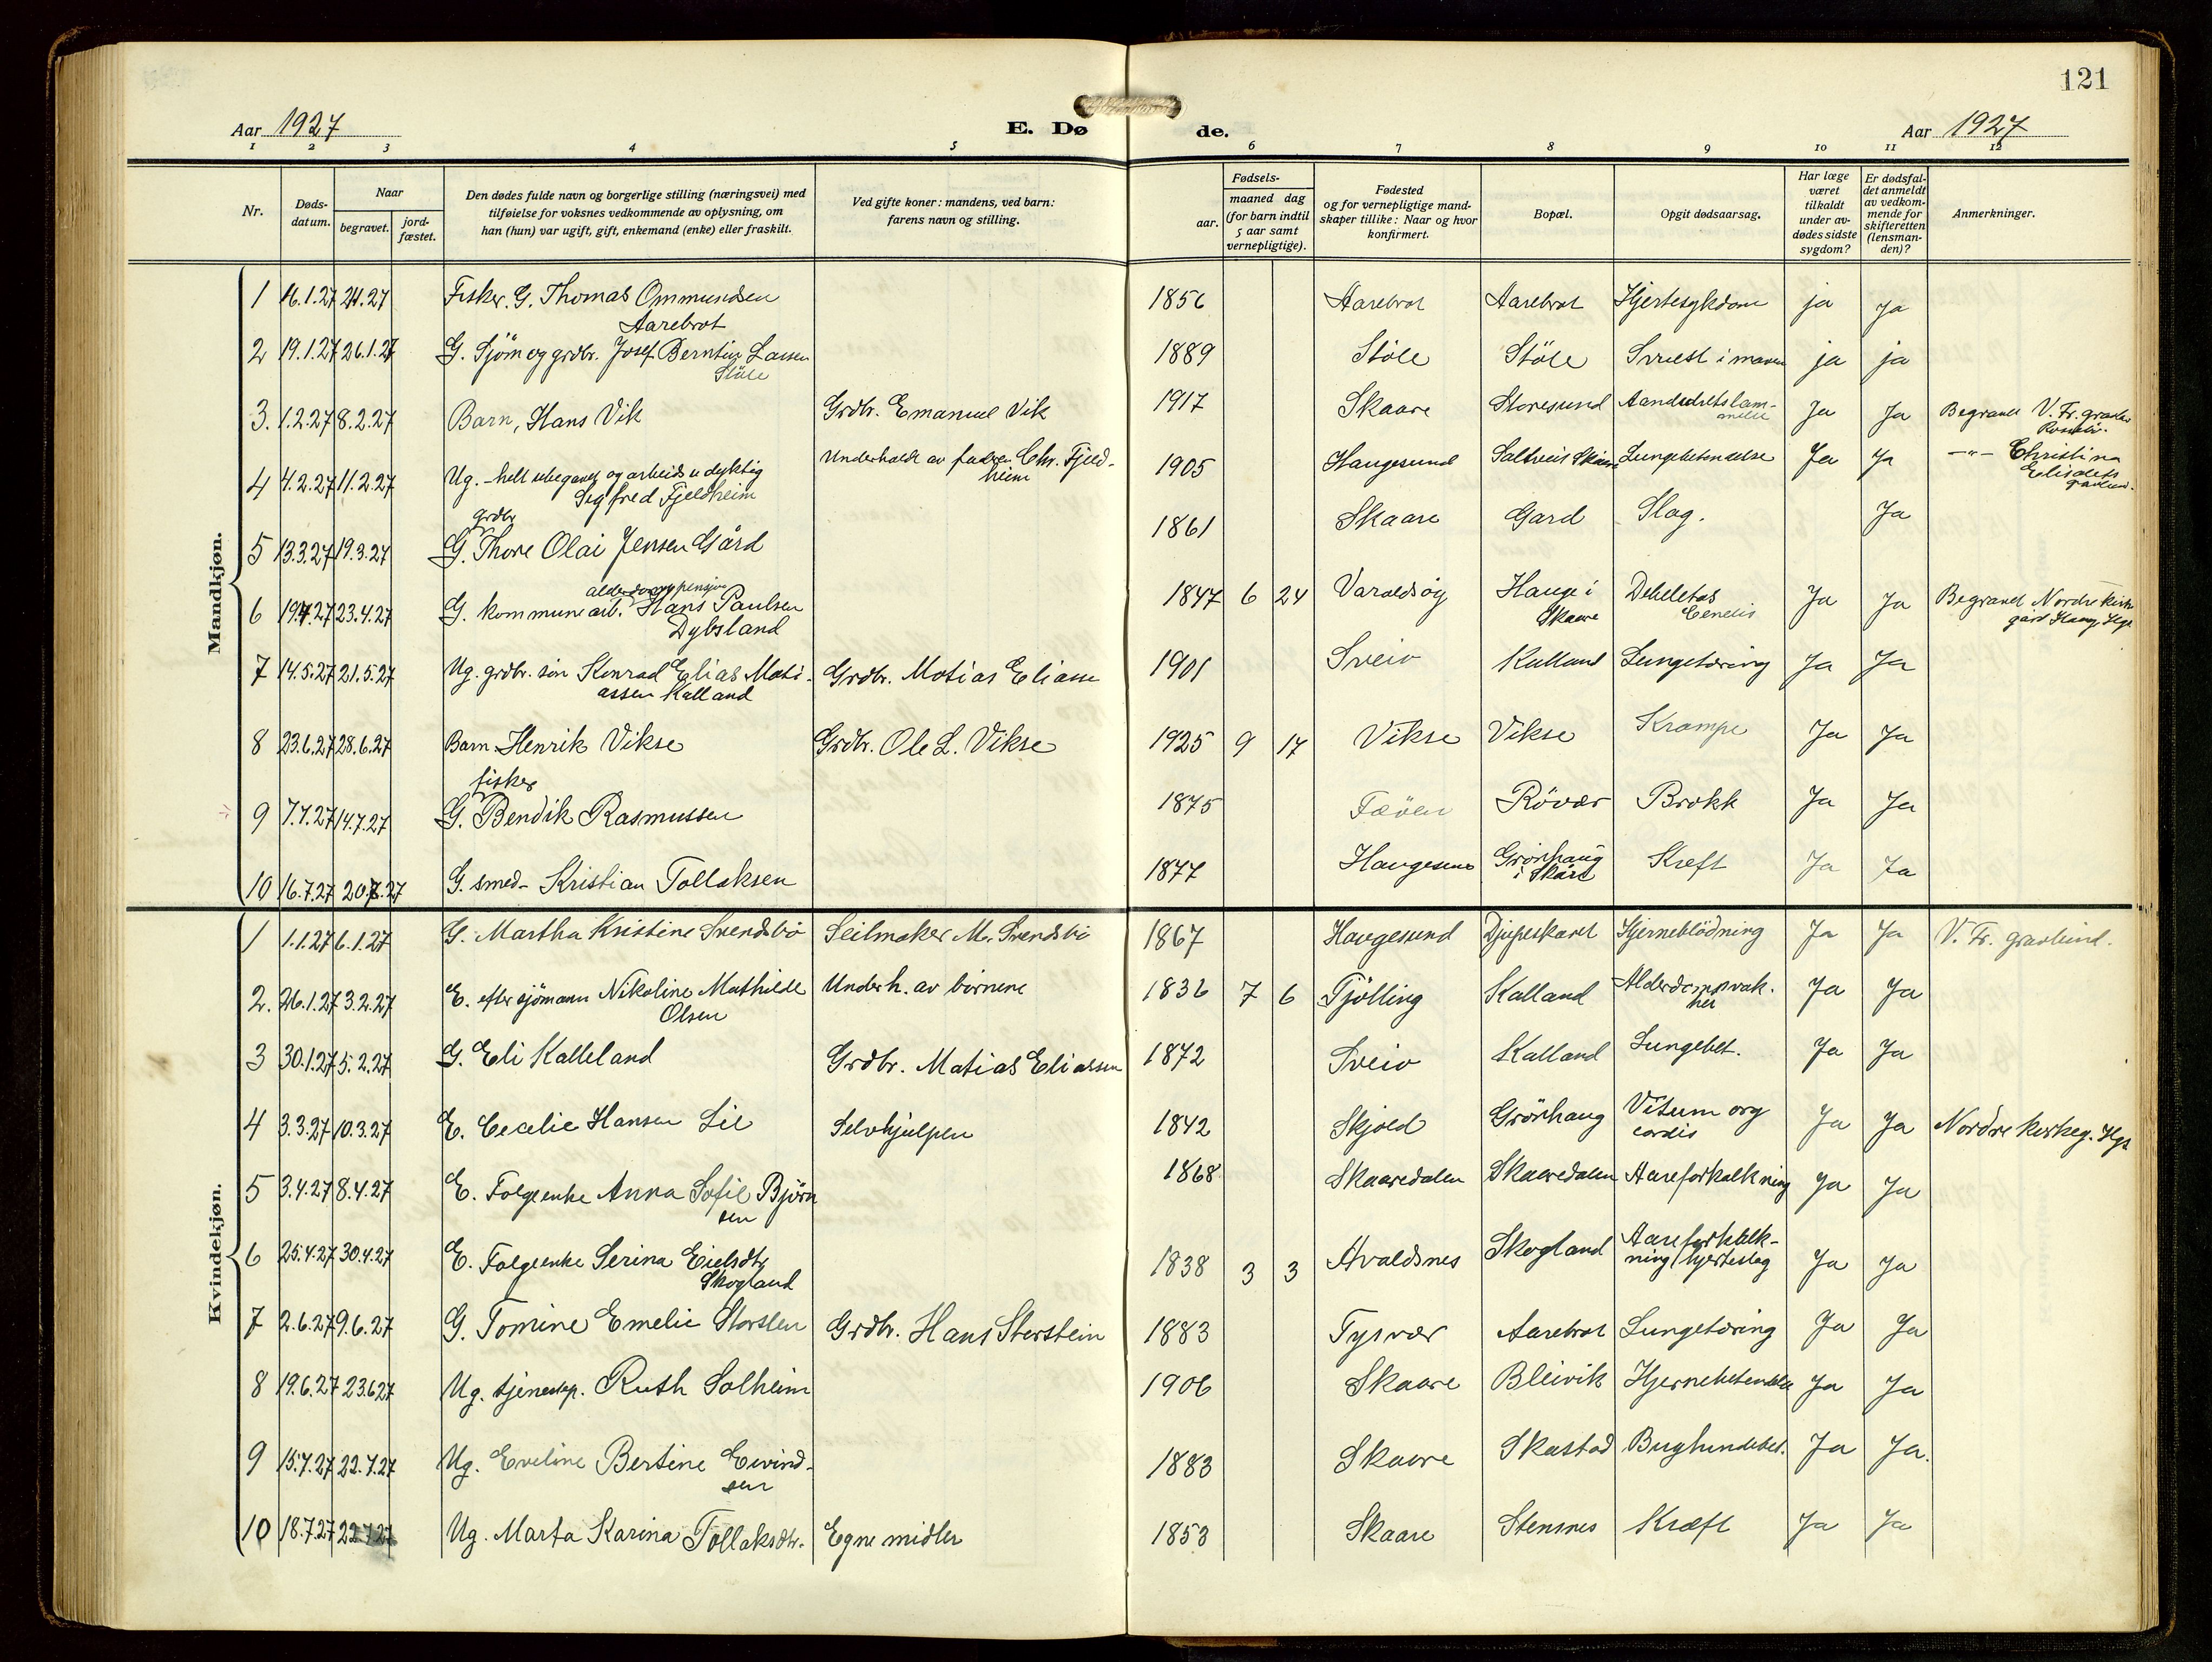 121
Aar 1927 E. Dø de. Aar 1927
1 2 3 4 5 6 7 8 9 10 11 12
Nr. Døds-datum. Naar begravet. jord-fæstet. Den dødes fulde navn og borgerlige stilling (næringsvei) med tilføielse for voksnes vedkommende av oplysning, om han (hun) var ugift, gift, enkemand (enke) eller fraskilt. Ved gifte koner: mandens, ved barn: farens navn og stilling. Fødsels- aar. maaned dag (for barn indtil 5 aar samt vernepligtige). Fødested og for vernepligtige mand-skaper tillike: Naar og hvor konfirmert. Bopæl. Opgit dødsaarsag. Har læge været tilkaldt under av-dødes sidste sygdom? Er dødsfal-det anmeldt av vedkom-mende for skifteretten (lensman-den)? Anmerkninger.
Mandkjøn.
1 16.1.27 Fisker. G. Thomas Ommundsen Aarebrot 1856 Aarebrot Aarebrot Hjertesykdom ja Ja
2 19.1.27 26.1.27 G. Sjöm og grdbr. Josef Berntin Lassen Stöle 1889 Stöle Stöle i maven ja ja
3. 1.2.27 8.2.27 Barn, Hans Vik Grdbr. Emanuel Vik 1917 Skaare Storesund Ja Ja Begravd V. Fr. gravlu
4 4.2.27 11.2.27 Ug. - helt ubegavet og arbeidsudyktig Sigfred Fjeldheim Underholdt av faderen Chr. Fjeld-heim 1905 Haugesund Saltveit Skaare Lungebetendelse Ja Ja —"— Christina Elisabets gravlund.
5 13.3.27 19.3.27 grdbr G. Thore Olai Jensen Gård 1861 Skaare Gard Slag. Ja
6 19.4.27 23.4.27 G. kommunearb. alderdomspensjon Hans Paulsen Dybsland 1847 6 24 Varaldsöy Hauge i Skaare Debeletas Ja Ja Begravd Nordre kirkegård Haug. Hgs
7 14.5.27 21.5.27 Ug. grdbr. sön Konrad Elias Mati-assen Kalland Grdbr. Matias Eliassen 1901 Sveio Kalland Lungetæring Ja Ja
8 23.6.27 28.6.27 Barn Henrik Vikse Grdbr. Ole L. Vikse 1925 9 17 Vikse Vikse Krampe Ja Ja
9 7.7.27 14.7.27 fisker G. Bendik Rasmussen 1875 Fæöen Rövær Brokk Ja Ja
10 16.7.27 20.7.27 G. smed- Kristian Tollaksen 1877 Haugesund Grönhaug i Skåre Kreft Ja Ja
Kvindekjøn.
1 1.1.27 6.1.27 G. Martha Kristine Svendsbö Seilmaker M. Svendsbö 1867 Haugesund Djupeskaret Hjerneblödning Ja Ja V. Fr. gravlund.
2. 26.1.27 3.2.27 E. efter sjömann Nikoline Mathilde Olsen Underh. av börnene 1836 7 6 Tjölling Kalland Alderdomsvak-het Ja Ja
3 30.1.27 5.2.27 G. Eli Kalleland Grdbr. Matias Eliassen 1872 Sveio Kalland Lungebet. Ja Ja
4 3.3.27 10.3.27 E. Cecelie Hansen Lie Selvhjulpen 1842 Skjold Grönhaug Vitium org cordis Ja Ja Nordre kirkeg. Hgs
5 3.4.27 8.4.27 E. Folgeenke Anna Sofie Björn sen 1868 Skaaredalen Skaaredalen Aareforkalkning Ja Ja
6 25.4.27 30.4.27 E. Folgeenke Serina Eielsdtr Skogland 1838 3 3 Avaldsnes Skogland Aareforkalk-ning / hjerteslag Ja Ja
7 2.6.27 9.6.27 G. Tomine Emelie Storsten Grdbr. Hans Storstein 1883 Tysvær Aarebrot Lungetæring Ja Ja
8 19.6.27 23.6.27 Ug. tjenestep. Ruth Solheim 1906 Skaare Bleivik Hjernebetendelse Ja Ja
9 15.7.27 22.7.27 Ug. Eveline Bertine Eivind-sen 1883 Skaare Skastad Bughindebet. Ja Ja.
10 18.7.27 22.7.27 Ug. Marta Karina Tollaksdtr. Egne midler 1853 Skaare Stensnes Kræft Ja Ja